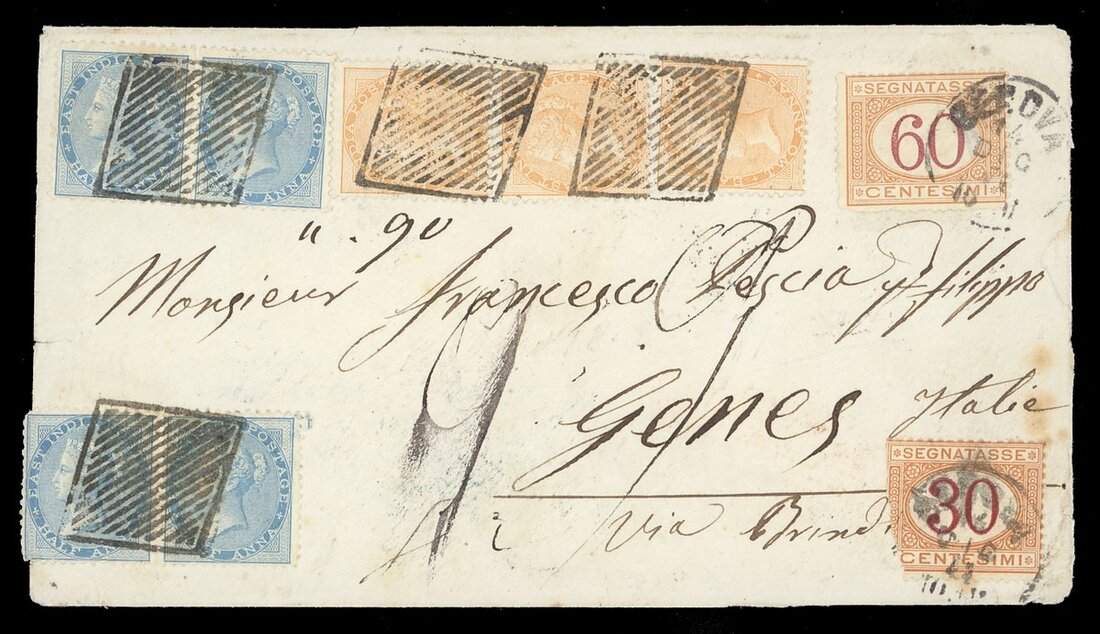 EAST INDIA POSTAGE
HALF ANNA
EAST INDIA POSTAGE
TWO ANNAS
SEGNATASSE
60
CENTESIMI
GENOVA
" . 90
Monsieur Francesco Pescia q.m Filippo
Genes Italie
Via Brindi
EAST INDIA POSTAGE
HALF ANNA
SEGNATASSE
30
CENTESIMI